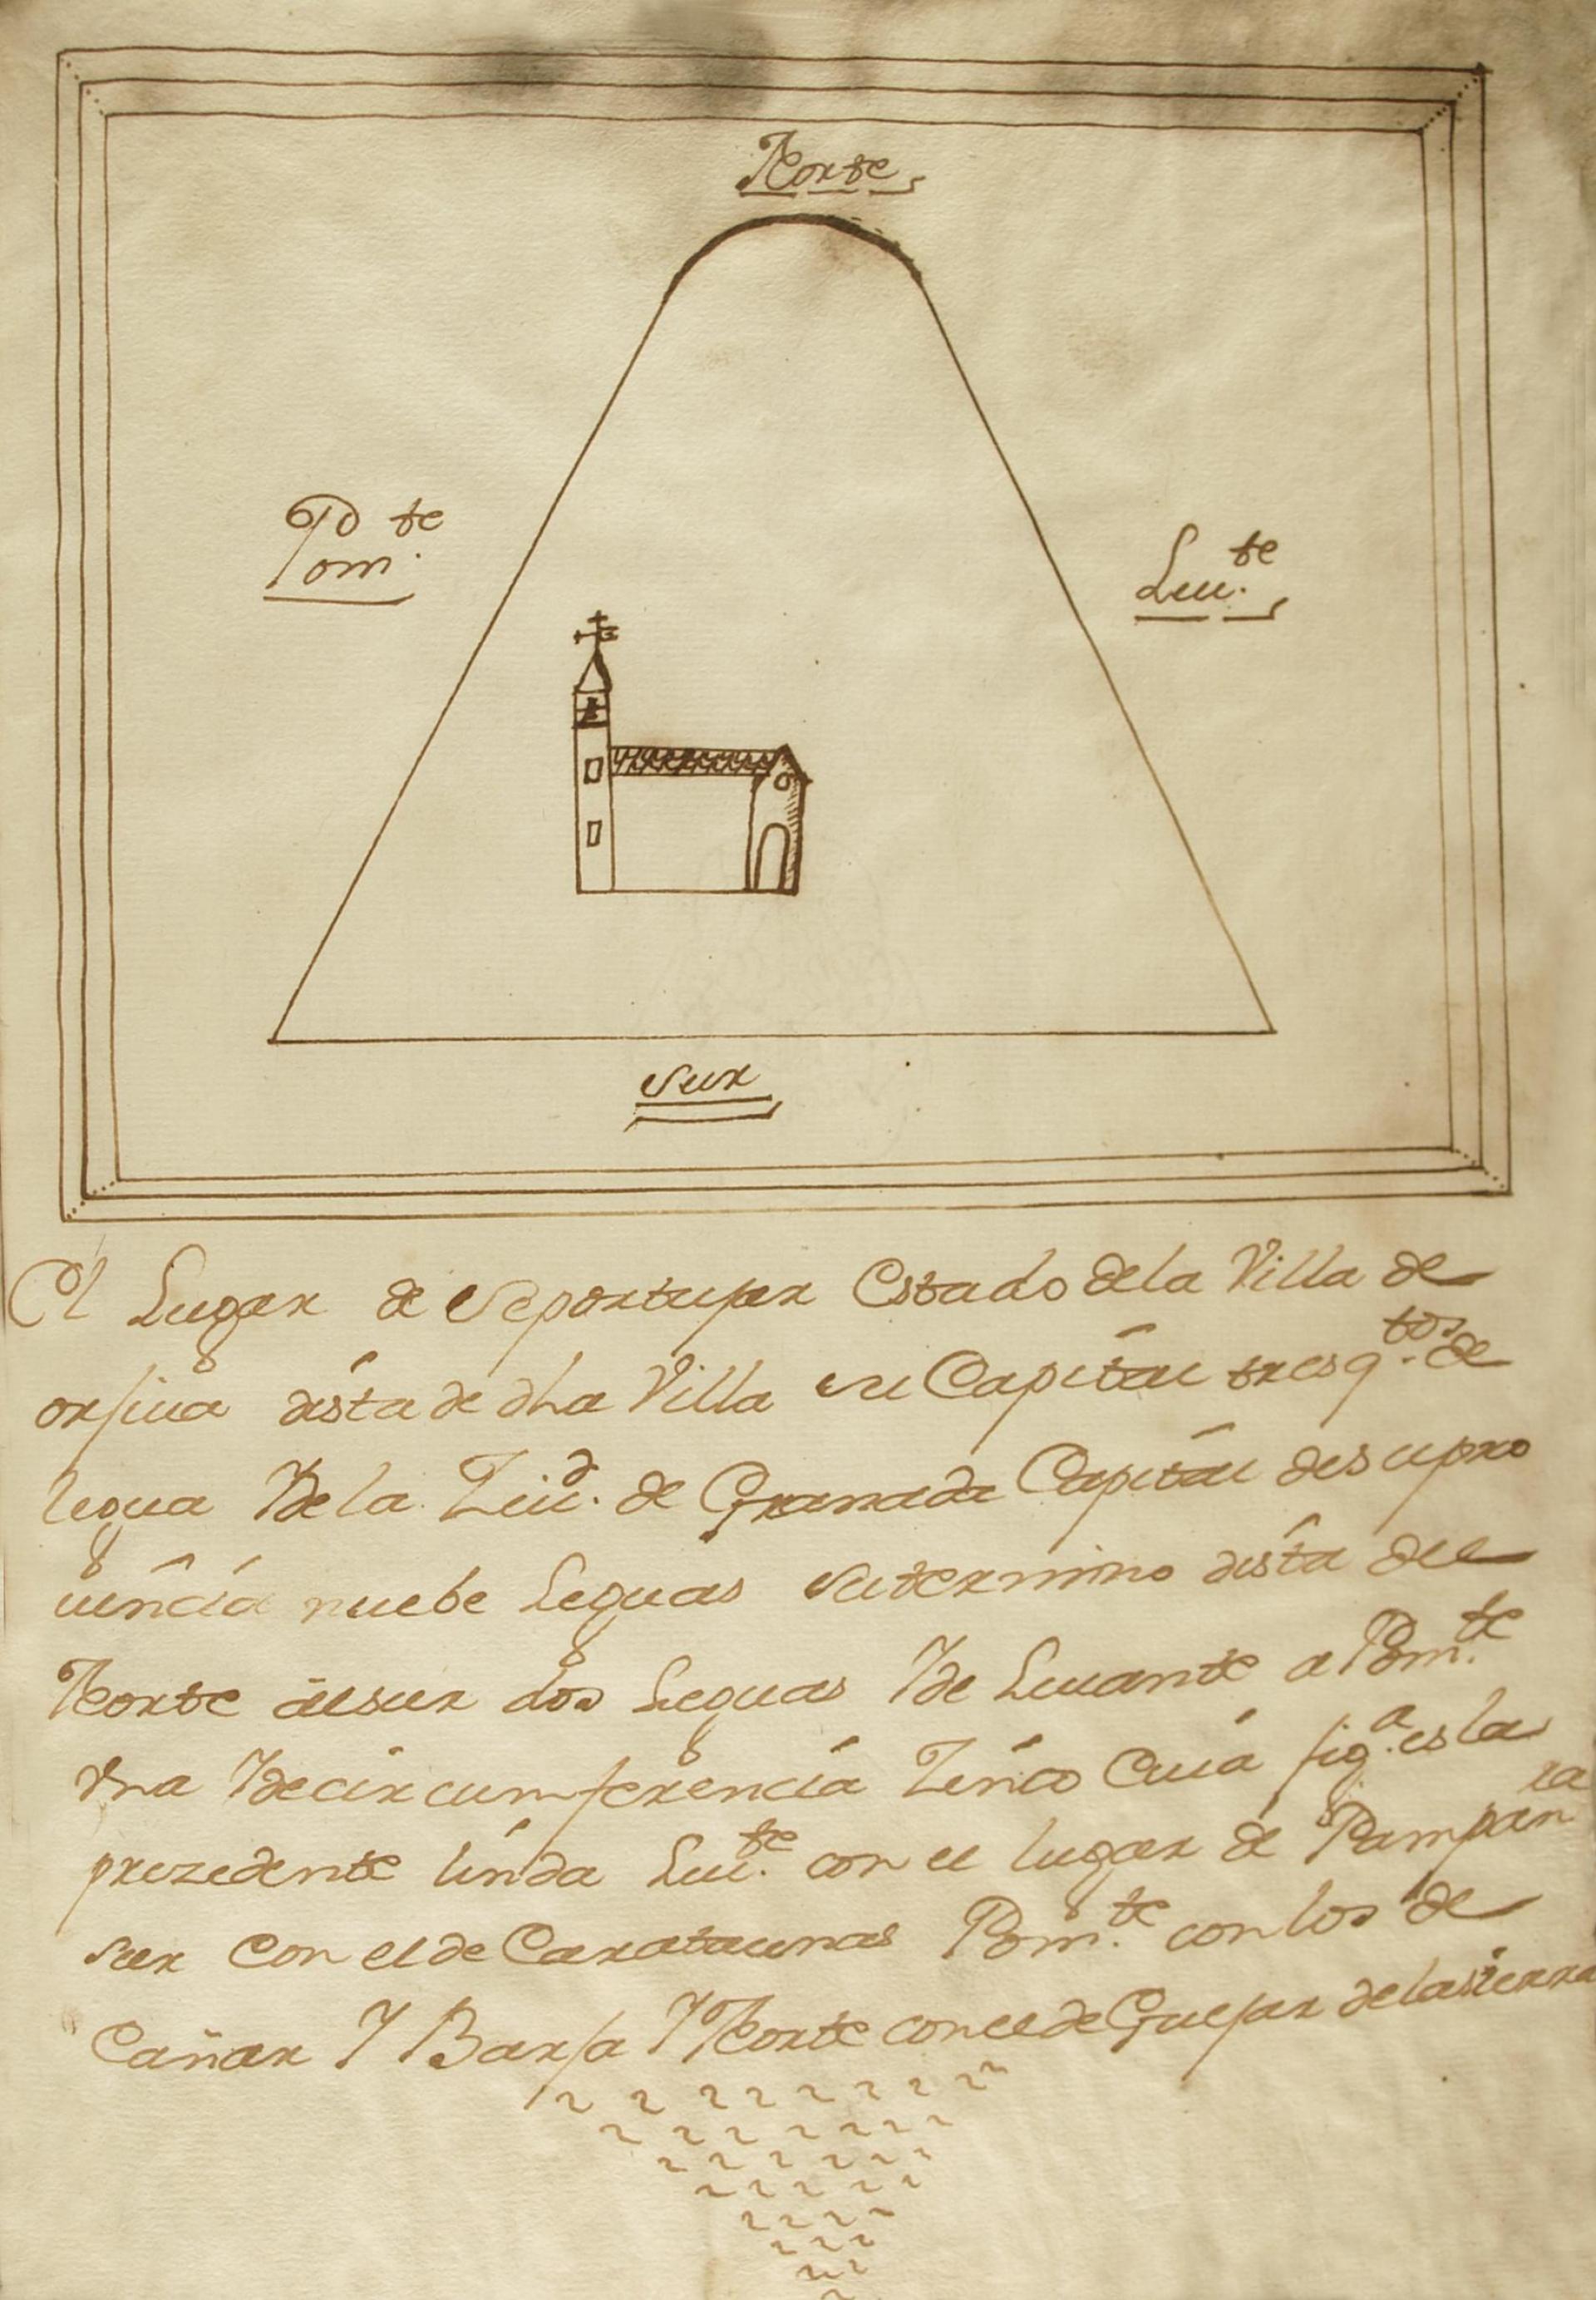 Norte
Pom.te
Leu.te
Sur
El Lugar de Soportujar Estado dela Villa de
orjiua dista de dha Villa su Capital tres q.tos de
legua Y de la Ziu.d de Granada Capital de su pro
uincia nuebe Leguas su termino dista del
Norte al sur dos Leguas Y de Leuante a Pom.te
Vna Y de circumferencia Zinco Cuia fig.a es la
prezedente linda Leu.te con el lugar de Pampanra
sur con el de Carataunas Pom.te con los de
Cañar Y Barja Y Norte con el de Guejar de la sierra